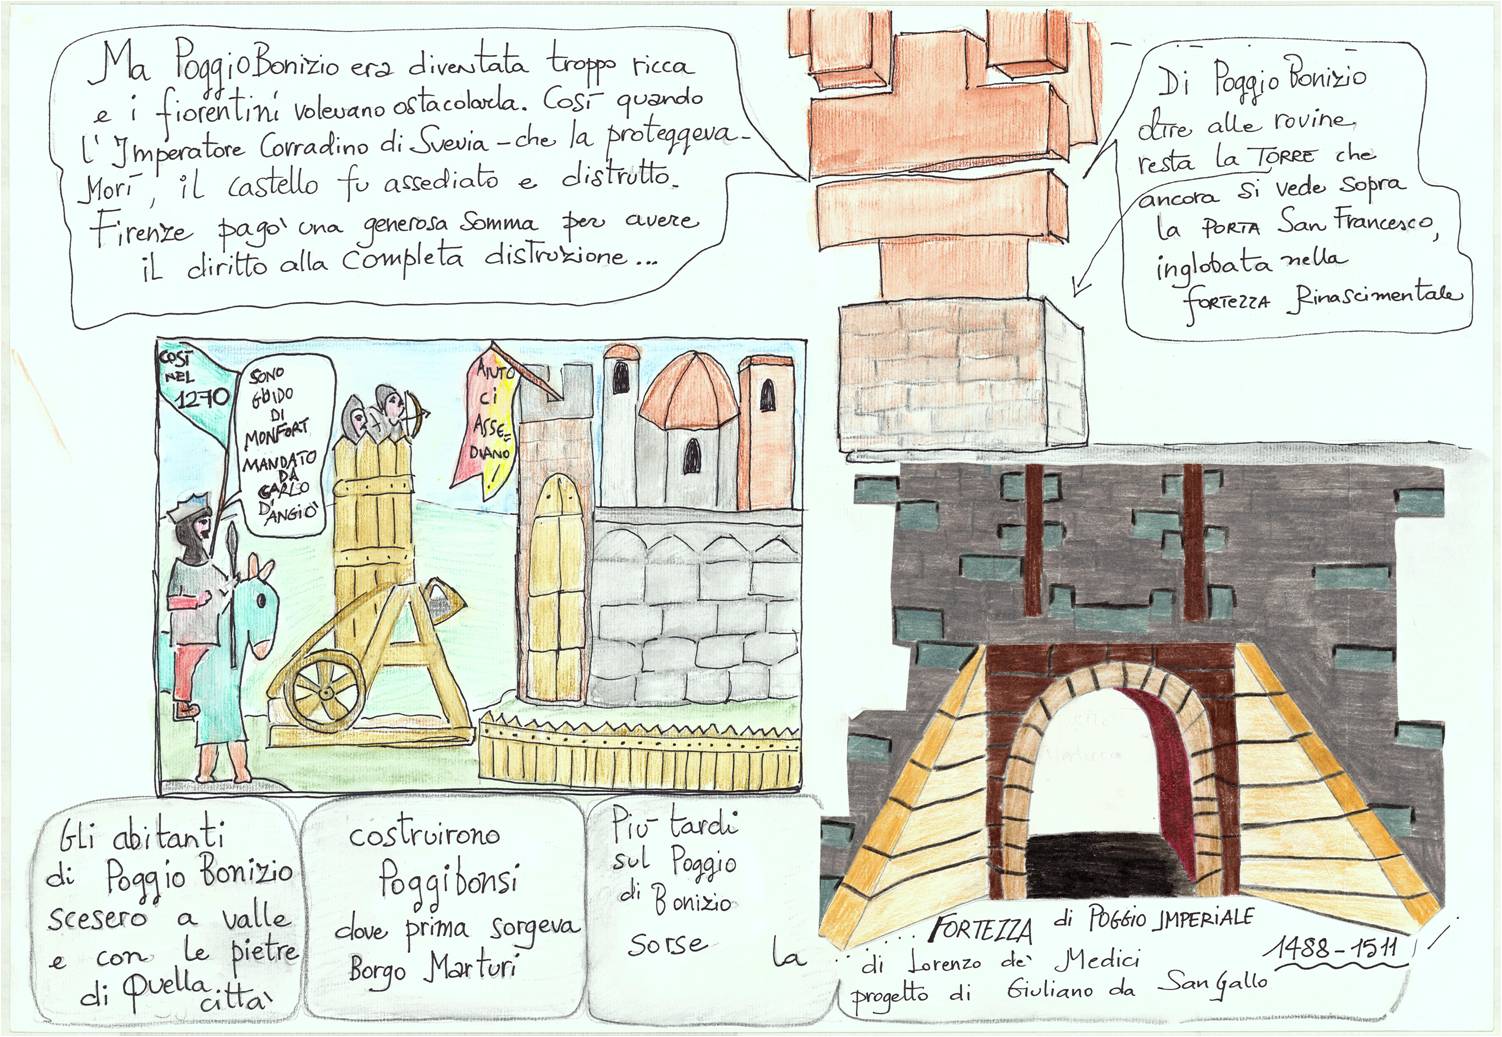 Ma PoggioBonizio era diventata troppo ricca
e i fiorentini volevano ostacolarla. Così quando
l'Imperatore Corradino di Svevia - che la proteggeva -
Morì, il castello fu assediato e distrutto.
Firenze pagò una generosa somma per avere
il diritto alla completa distruzione...
Di Poggio Bonizio
oltre alle rovine
resta la TORRE che
ancora si vede sopra
la PORTA San Francesco,
inglobata nella
FORTEZZA Rinascimentale
COSÌ
NEL
1270
SONO
GUIDO
DI
MONFORT
MANDATO
DA
CARLO
D'ANGIÒ
AIUTO
CI
ASSE=
DIANO
!
Gli abitanti
di Poggio Bonizio
scesero a valle
e con le pietre
di Quella
città
costruirono
Poggibonsi
dove prima sorgeva
Borgo Marturi
Più tardi
sul Poggio
di Bonizio
sorse la
FORTEZZA di POGGIO IMPERIALE
1488-1511
di Lorenzo de' Medici
progetto di Giuliano da San Gallo